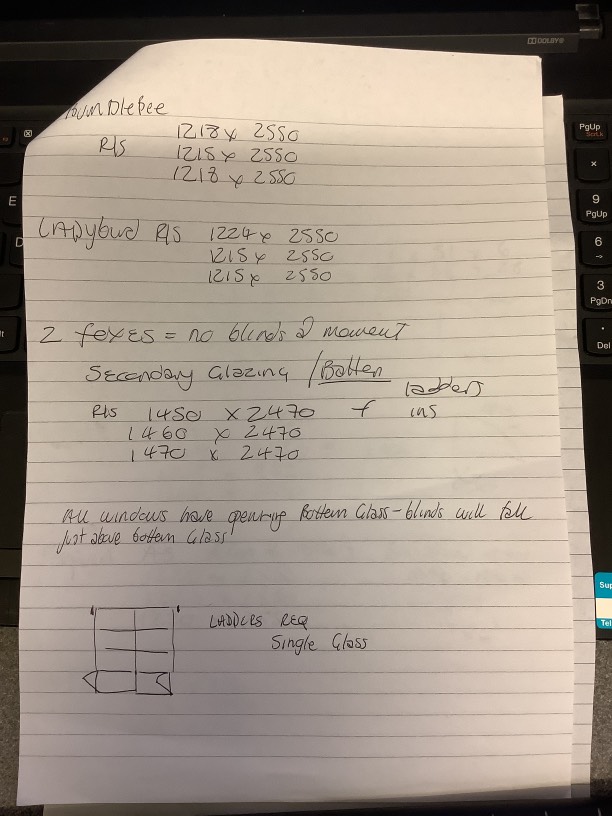 BumBleBee
R/S 1218 x 2550
1215 x 2550
1218 x 2550
LADybud R/S 1224 x 2550
1215 x 2550
1215 x 2550
2 foxes = no blinds @ moment
Secondary Glazing / Batten
ladders
R/S 1450 x 2470 f ins
1460 x 2470
1470 x 2470
All windows have opening Bottem Glass - blinds will fall
Just above bottem Glass
LADDERS REQ
Single Glass
DOLBY
PgUp
ScrLk
9
PgUp
6
3
PgDn
Del
E
D
Sup
Tel